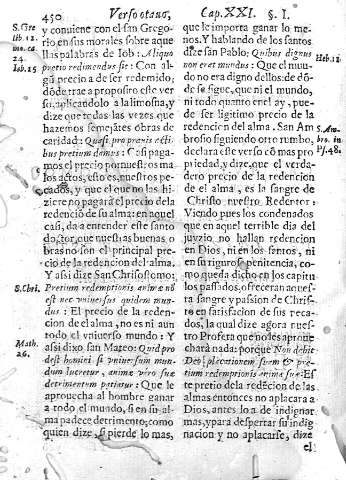 450 Verso otauo,
S. Gre
lib. 12.
mo. ca.
24.
Iob. 15
y conuiene con el san Grego-
rio en sus morales sobre aque
llas palabras de Iob: Aliquo
pretio redimendus sit: Con al-
gū precio a de ser redemido;
dōde, trae a proposito este ver
so, aplicandolo a la limosna, y
dize que todas las vezes que
hazemos semejātes obras de
caridad: Quasi pro prauis acti
bus pretium damus: Cōsi paga-
mos el precio por nuestros ma
los actos, esto es, nuestros pe-
cados, y que el que no las hi-
ziere no pagarà el precio de la
redenciō de su alma: en aquel
casi, da a entender este santo
doctor, que nuestras buenas o
bras no son el principal pre-
cio de la redencion del alma.
Y assi dize San Chrisostomo:
S. Chri.
Pretium redemptionis animæ nō
est nec vniuersus quidem mun-
dus: El precio de la reden-
cion de el alma, no es ni aun
todo el vniuerso mundo: Y
Math.
26.
assi dixo san Mateo: Quid pro
dest homini si vniuersum mun-
dum lucretur, animæ vero suæ
detrimentum patiatur: Que le
aprouecha al hombre ganar
a todo el mundo, si en su al-
ma padece detrimento; como
quien dize, si pierde lo mas,
Cap. XXI. §. I.
que le importa ganar lo me-
nos. Y hablando de los santos
Heb. 11.
dize san Pablo: Quibus dignus
non erat mundus: Que el mun-
do no era digno dellos: de dō-
de se sigue, que ni el mundo,
ni todo quanto en el ay, pue-
de ser ligitimo precio de la
redencion del alma. San Am
S. Am
bro. in
Ps. 48.
brosio siguiendo otro rumbo,
declara este verso cō mas pro
piedad, y dize, que el verda-
dero precio de la redencion
de el alma, es la sangre de
Christo nuestro Redentor:
Viendo pues los condenados
que en aquel terrible dia del
juyzio no hallan redencion
en Dios, ni en los santos, ni
en su rigurosa penitencia, co-
mo queda dicho en los capitu
los passados, ofreceran aques-
ta sangre y passion de Chris-
to en satisfacion de sus reca-
dos, la qual dize agora nues-
tro Profeta que no les aproue
charà nada: porque Non dabit
Deo placationem suam & pre-
tium redemptionis animæ suæ: Es
te pretio de la redēcion de las
almas entonces no aplacara a
Dios, antes lo a de indignar
mas, y para despertar su indig
nacion y no aplacarse, dize
el